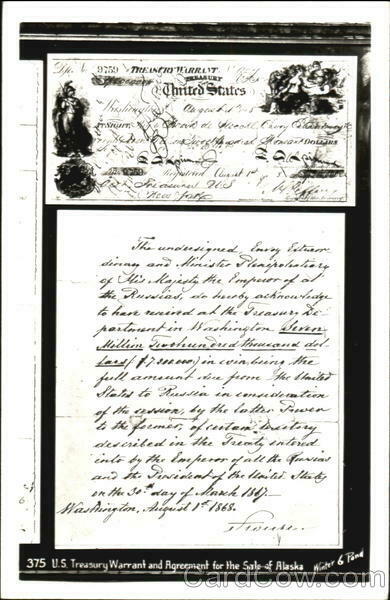 9759 TREASURY WARRANT
TREASURY
United States
Washington August 1
AT SIGHT
DOLLARS
Registered August 1st
Treasurer U.S.
New York
The undersigned Envoy Extraor
dinary and Minister Plenipotentiary
of His Majesty the Emperor of all
the Russias, do hereby acknowledge
to have received at the Treasury De
partment in Washington Seven
Million Two hundred thousand dol
lars ($7.200000) in coin being the
full amount due from the United
States to Russia in consideration
of the cession, by the latter Power
to the former, of certain territory
described in the Treaty entered
into by the Emperor of all the Russias
and the President of the United States
on the 30th day of March 1867.
Washington, August 1st 1868.
Stoeckl
375 U.S. Treasury Warrant and Agreement for the Sale of Alaska Winter & Pond
CardCow.com